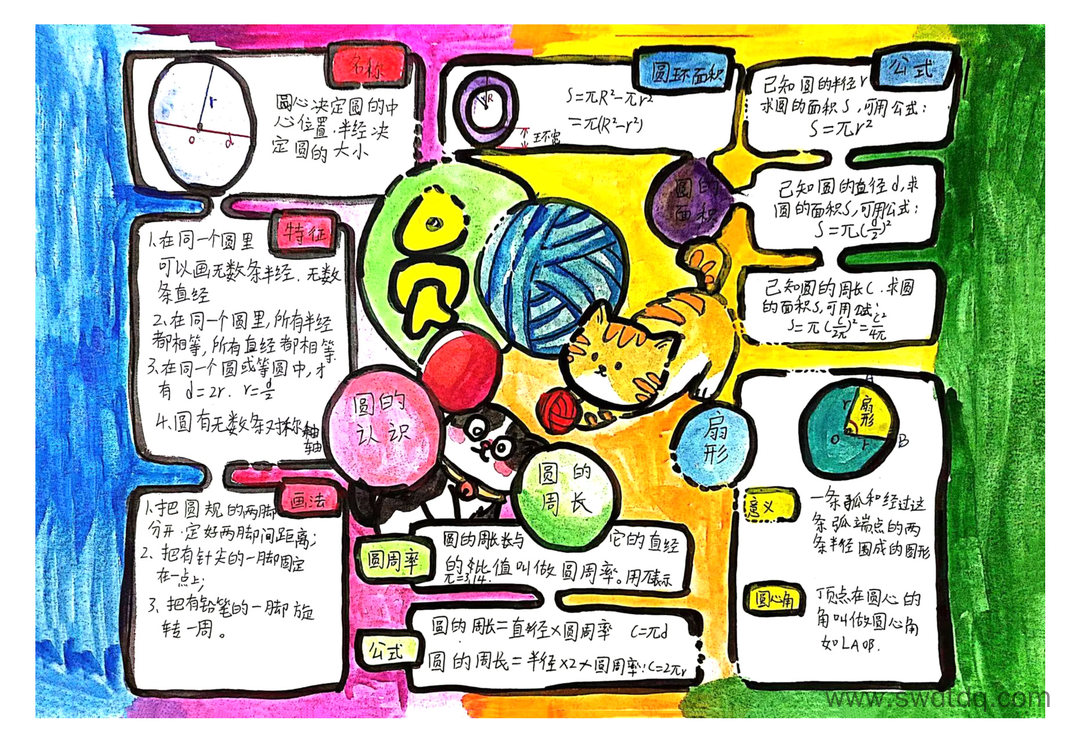 名称
r
o
d
圆心决定圆的中
心位置.半经决
定圆的大小
特征
1.在同一个圆里
可以画无数条半经.无数
条直经
2.在同一个圆里,所有半经
都相等,所有直经都相等.
3.在同一个圆或等圆中,才
有 d=2r. r=d/2
4.圆有无数条对称轴
轴
画法
1.把圆规的两脚
分开.定好两脚间距离;
2.把有针尖的一脚固定
在一点上;
3.把有铅笔的一脚旋
转一周。
圆的
认识
圆的
周长
圆周率
圆的周长与它的直经
的比值叫做圆周率.用π表示
π=3.14.
公式
圆的周长=直径×圆周率 C=πd
圆的周长=半径×2×圆周率:C=2πr
圆环面积
R
S=πR²-πr²
=π(R²-r²)
环宽
圆的
面积
公式
已知圆的半径r
求圆的面积S,可用公式:
S=πr²
已知圆的直径d,求
圆的面积S,可用公式:
S=π(d/2)²
已知圆的周长C.求圆
的面积S,可用公式:
S=π(C/2π)²=C²/4π
扇
形
A
r
扇
形
O
r
B
意义
一条弧和经过这
条弧端点的两
条半径围成的图形
圆心角
顶点在圆心的
角叫做圆心角
如∠AOB.
www.swdtdq.com